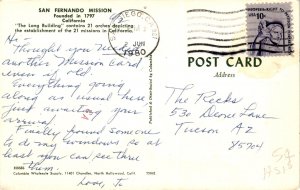 SAN FERNANDO MISSION
Founded in 1797
California
"The Long Building" contains 21 arches depicting
the establishment of the 21 missions in California.
SAN DIEGO
JUN
1980
USA 10c
Hi
Thought you needed
another Mission card
even if old.
Everything going
along as usual here
just awaiting your
arrival.
Finally found someone
to do my windows so at
least you can see thru
them
Love,
POST CARD
Address
The Recks
530 Deone Lane
Tucson AZ
85704
Columbia Wholesale Supply, 11401 Chandler, No. Hollywood, Calif.